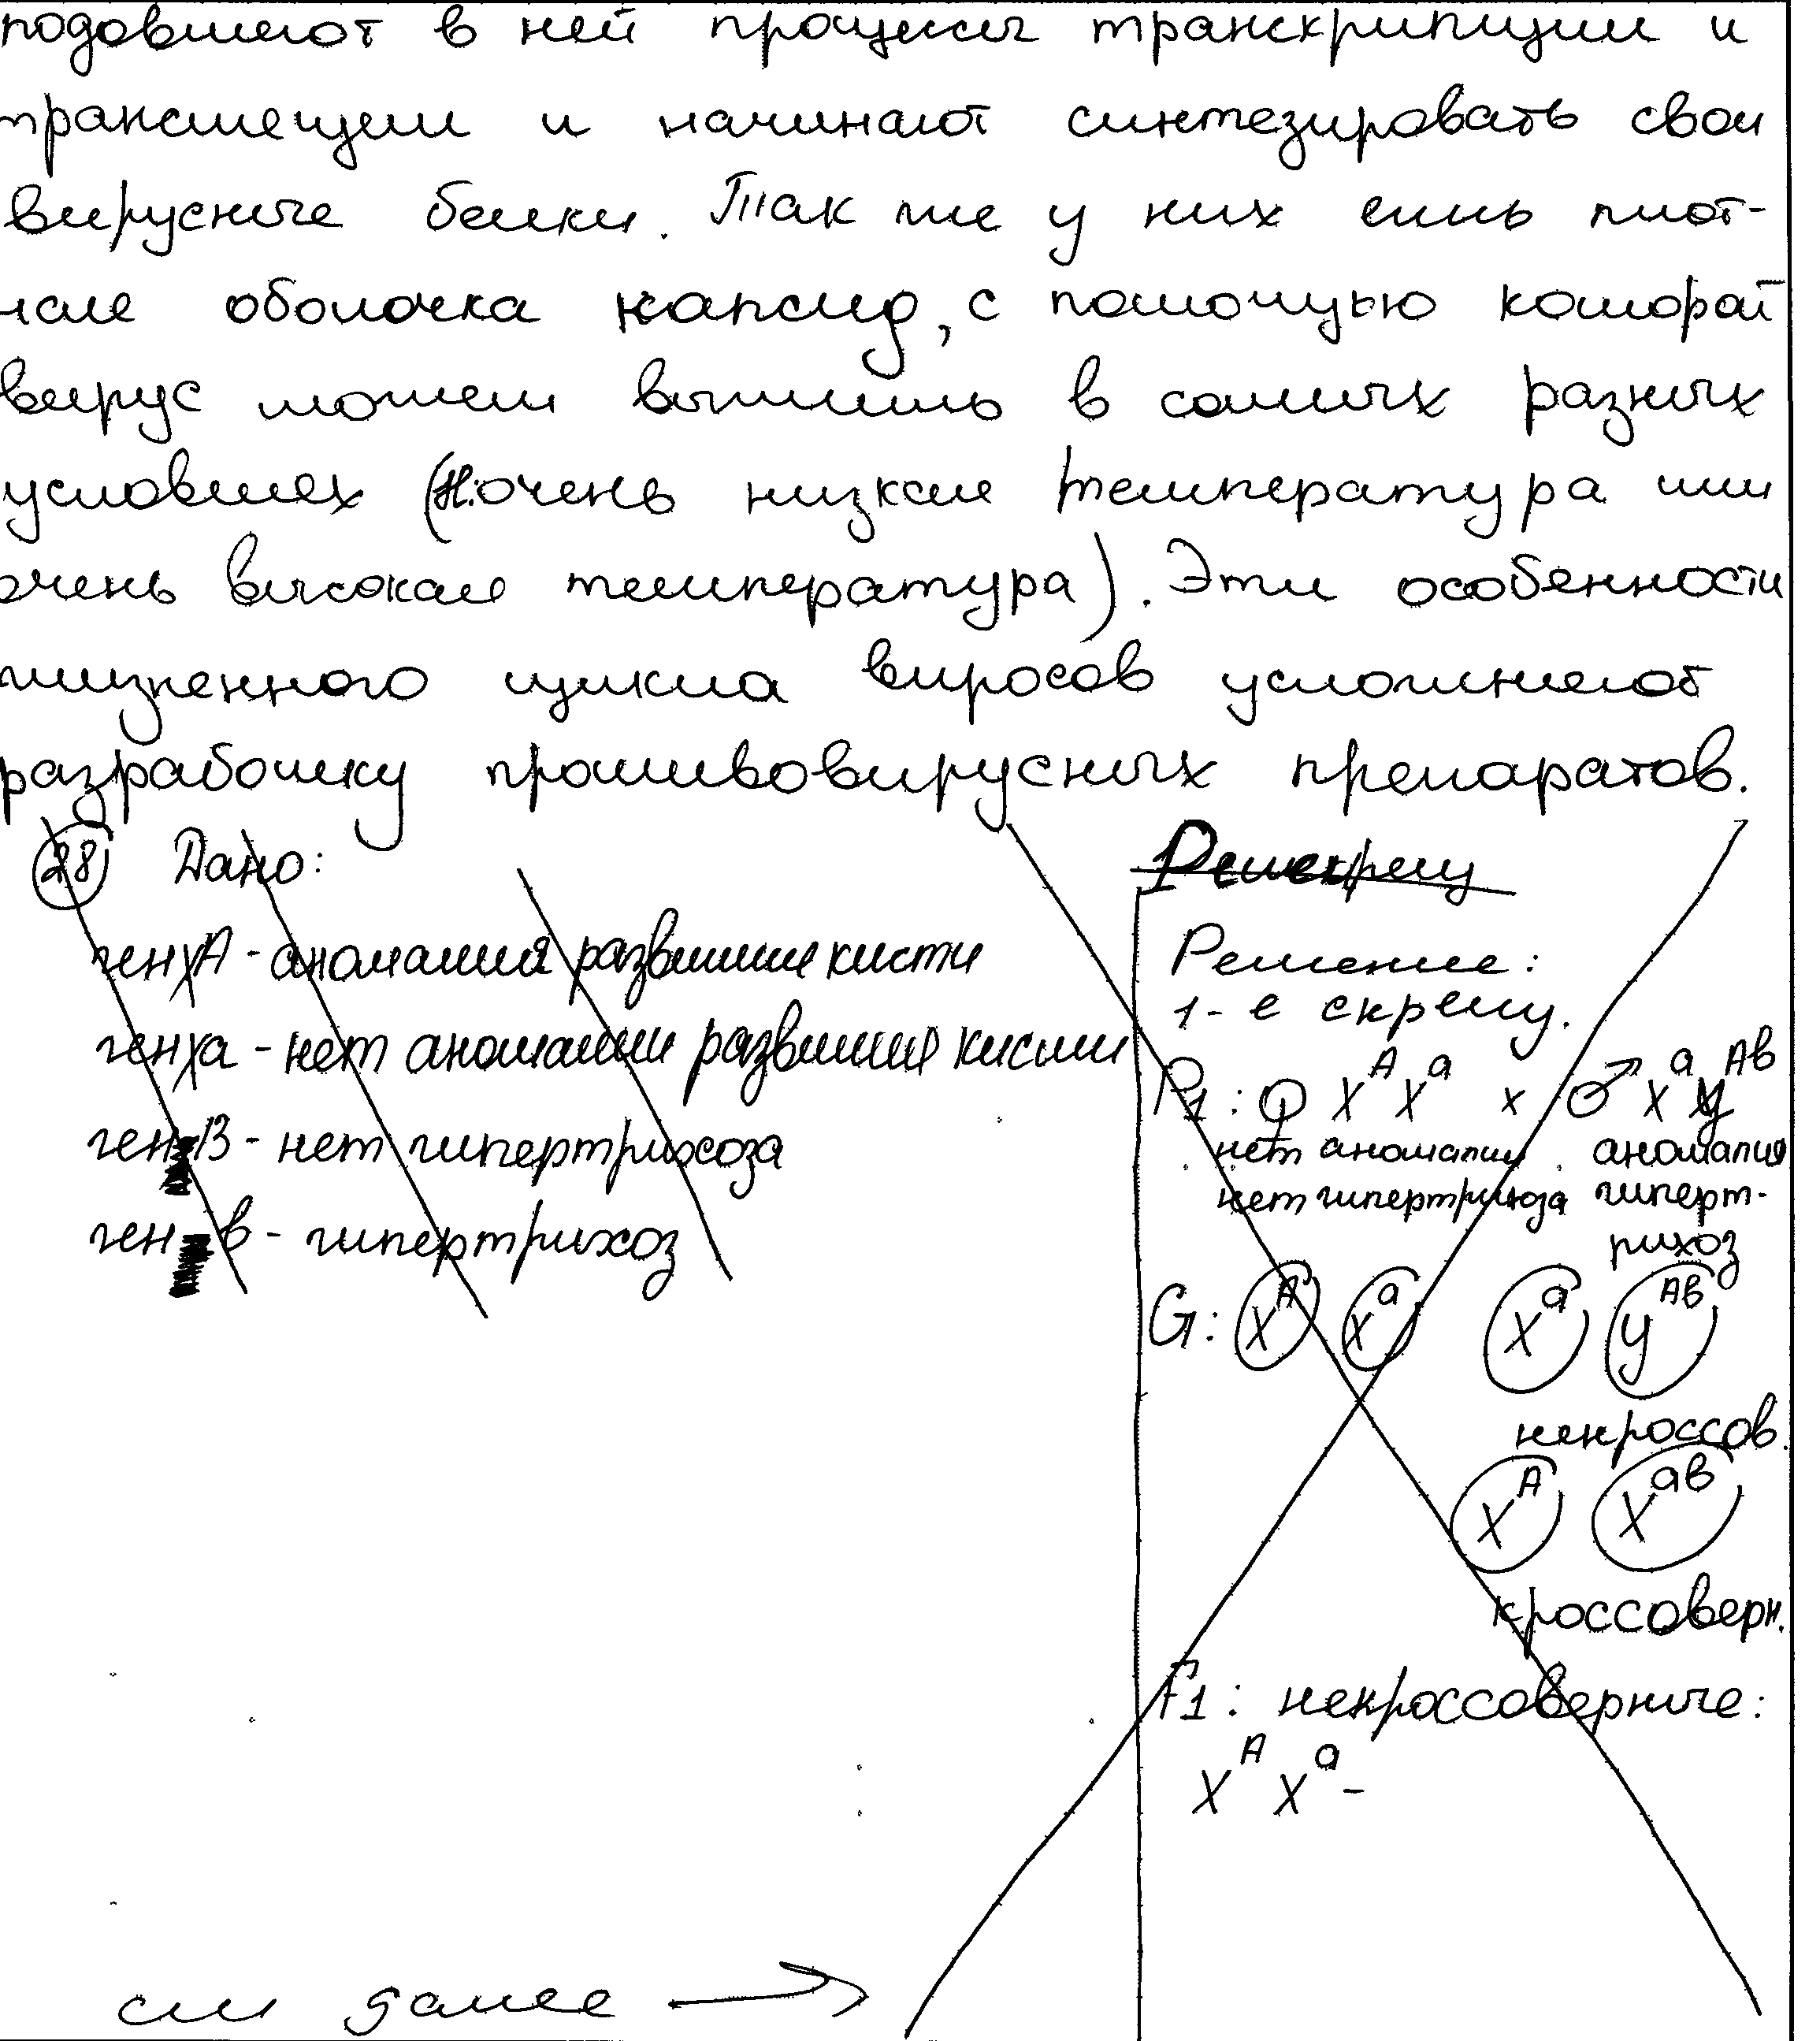 подовляют в ней процессы транскрипции и
трансляции и начинают синтезировать свои
вирусные белки. Так же у них есть плот-
ная оболочка капсид, с помощью которой
вирус может выжить в самых разных
условиях (н: очень низкая температура или
очень высокая температура). Эти особенности
жизненного цикла виросов усложняют
разработку противовирусных препаратов.
28 Дано:
ген A - аномалия развития кисти
ген a - нет аномалии развития кисти
ген B - нет гипертрихоза
ген в - гипертрихоз
Решение:
1-е скрещ.
P1: ♀ X^A X^a × ♂ X^a У^Aв
нет аномалии аномалия
нет гипертрихоза гиперт-
рихоз
G: X^A X^a X^a У^Aв
некроссов.
X^A X^aв
кроссоверн.
F1: некроссоверные:
X^A X^a -
см далее →